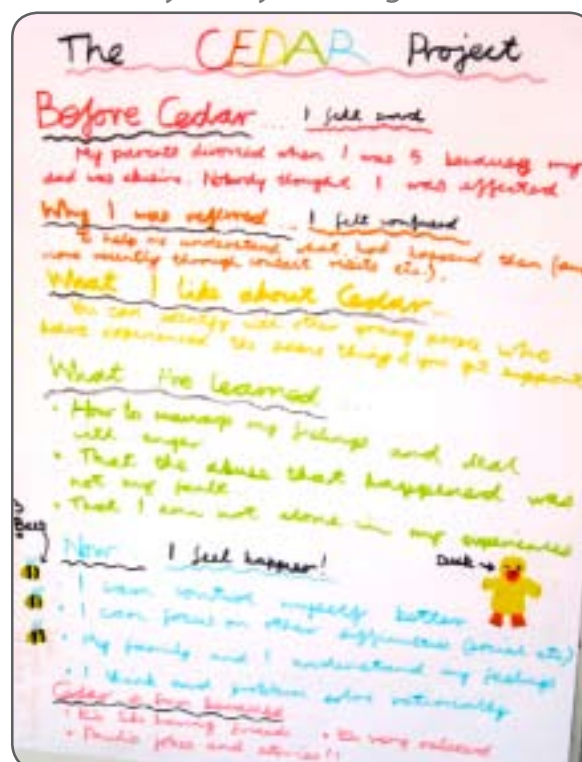 The CEDAR Project
Before Cedar... I felt
My parents divorced when I was 5 because my
dad was abusive. Nobody thought I was affected
Why I was referred... I felt confused
To help me understand what had happened then (and
more recently through contact visits etc.).
What I like about Cedar...
You can identify with other young people who
have experienced the same things & you get support
What I've learned...
• How to manage my feelings and deal
with anger
• That the abuse that happened was
not my fault
• That I am not alone in my experiences
Bees
Now... I feel happier!
Duck
• I can control myself better
• I can focus on other difficulties (social etc)
• My family and I understand my feelings
• I think and problem solve rationally
Cedar is fun because
• It's like having friends • It's very relaxed
• jokes and stories!!